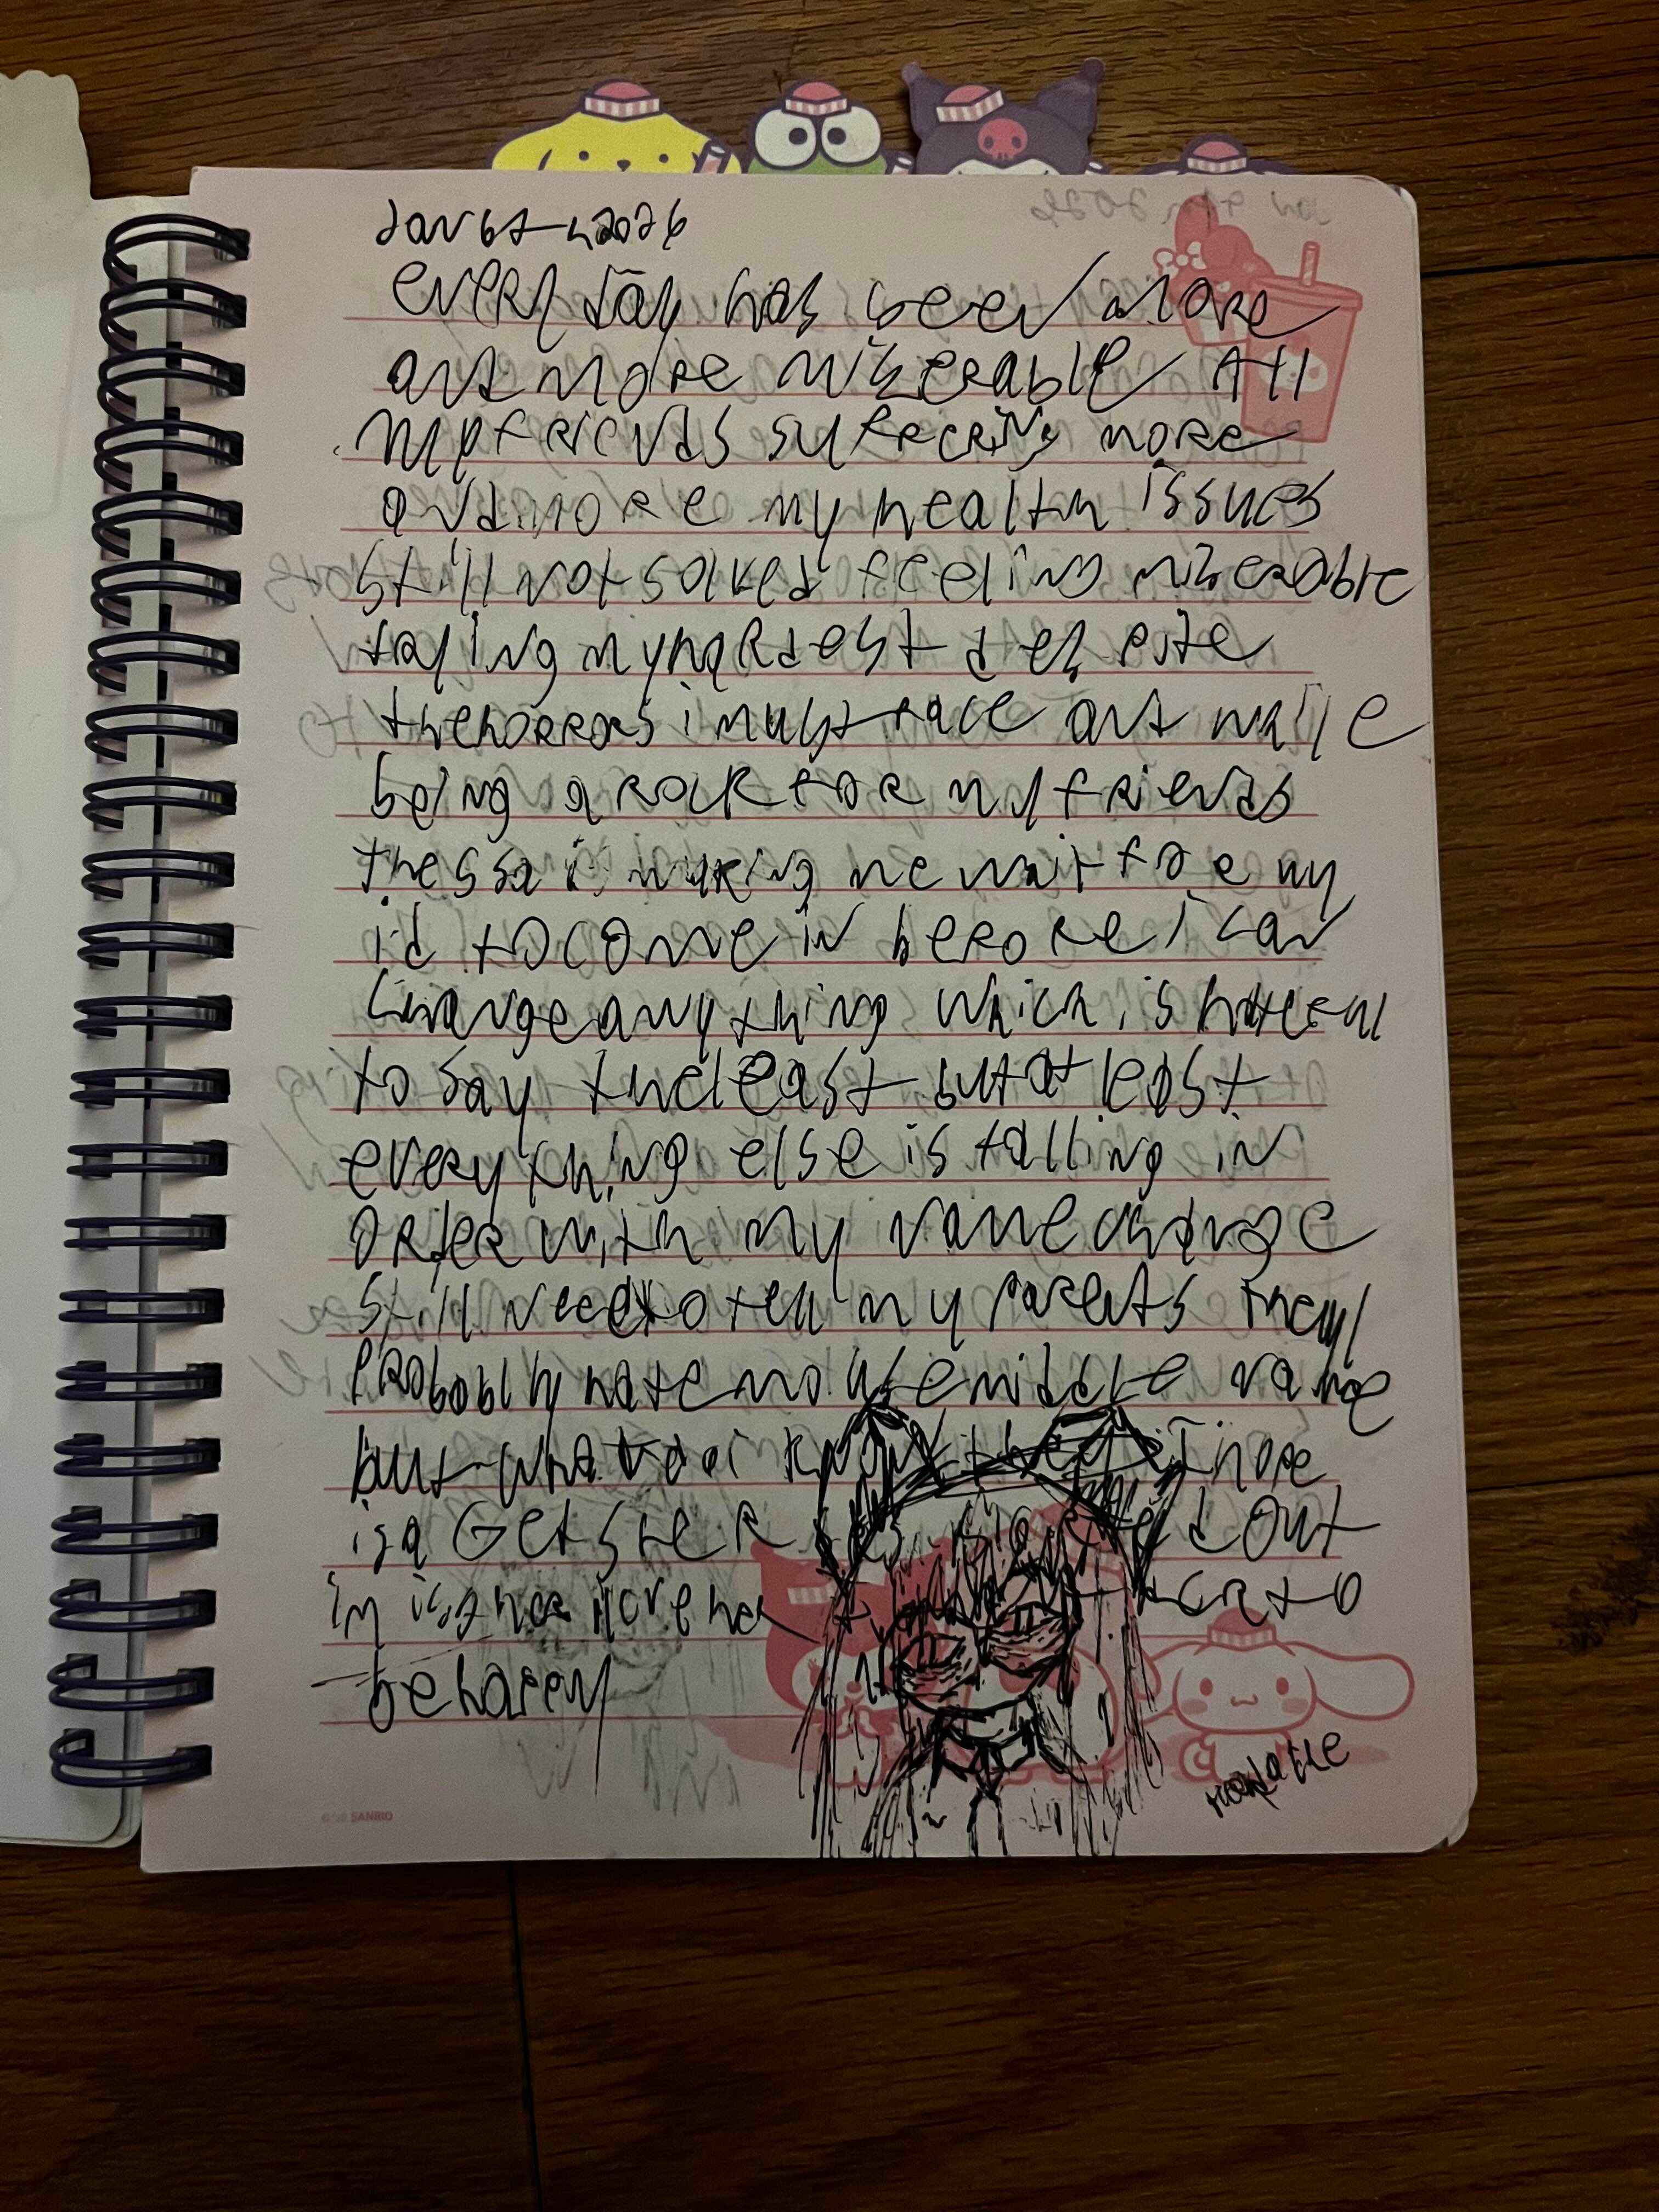 Jan 6th 2026
every day has been more
and more miserable All
My friends suffering more
and more my health issues
still not solved feeling miserable
trying my hardest despite
the horrors i must face and while
being a rock for my friends
the ssa is making me wait for my
id to come in before i can
change anything which is hateful
to say the least but at least
everything else is falling in
order with my name change
still need to tell my parents they'll
Probably hate my middle name
but what do i know they
is a Getster out
im to
be happy
©'25 SANRIO